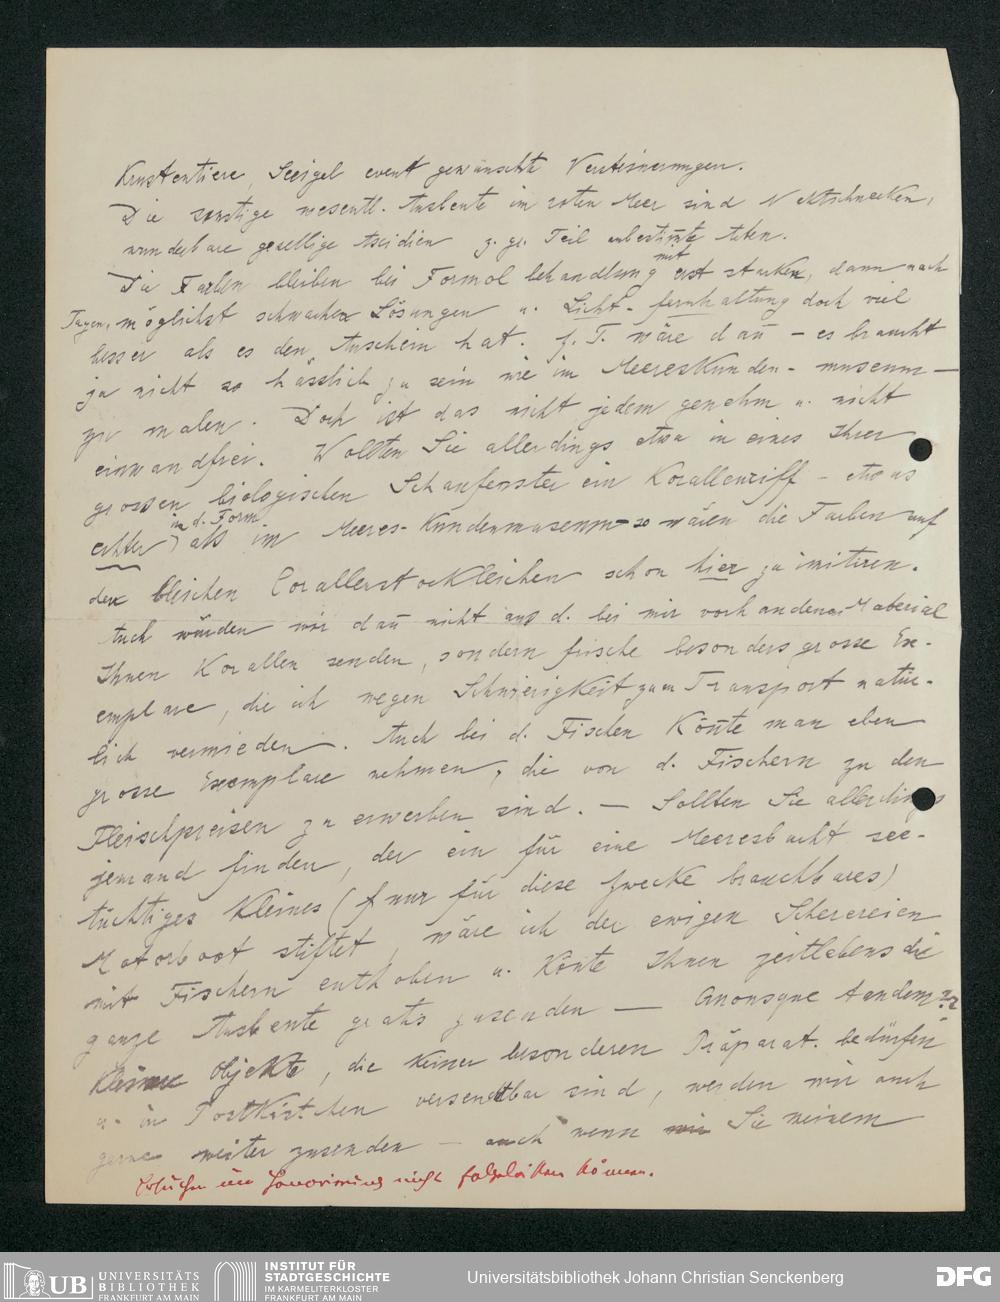 Krustentiere, Seeigel event gewünschte Versteinerungen.
Die sonstige wesentl. Ausbeute im roten Meer sind Nacktschnecken,
wunderbare gesellige Ascidien z. gr. Teil unbestimte Arten.
Die Farben bleiben bei Formol behandlung mit erst starken, dann nach
Tagen, möglichst schwachen Lösungen u. Licht-fernhaltung doch viel
besser als es den Anschein hat. z. T. wäre dañ – es braucht
ja nicht so hässlich zu sein wie im Meereskunden-museum –
zu malen. Doch ist das nicht jedem genehm u. nicht
einwandfrei. Wollten Sie allerdings etwa in eines Ihrer
grossen biologischen Schaufenster ein Korallenriff – etwas
echter in d. Form als im Meeres-Kundenmuseum – so wären die Farben auf
den bleichen Corallenstockleichen schon hier zu imitiren.
Auch würden wir dañ nicht aus d. bei mir vorhandenes Material
Ihnen Korallen senden, sondern frische besonders grosse Ex-
emplare, die ich wegen Schwierigkeit zum Transport natür-
lich vermieden. Auch bei d. Fischen Könte man eben
grosse Exemplare nehmen, die von d. Fischern zu den
Fleischpreisen zu erwerben sind. – Sollten Sie allerdings
jemand finden, der ein für eine Meeresbucht see-
tüchtiges Kleines (nur für diese Zwecke brauchbares)
Motorboot stiftet, wäre ich der ewigen Scherereien
mit Fischern enthoben u. Könte Ihnen zeitlebens die
ganze Ausbeute gratis zusenden –
Kleinere Objekte, die Keiner besonderen Präparat. bedürfen
u. in Postkistchen versendbar sind, werden wir auch
gerne weiter zusenden – auch wenn Sie meinem
Ersuchen um Honorirung nicht folgeleisten können.
UB UNIVERSITÄTS
BIBLIOTHEK
FRANKFURT AM MAIN
INSTITUT FÜR
STADTGESCHICHTE
IM KARMELITERKLOSTER
FRANKFURT AM MAIN
Universitätsbibliothek Johann Christian Senckenberg
DFG